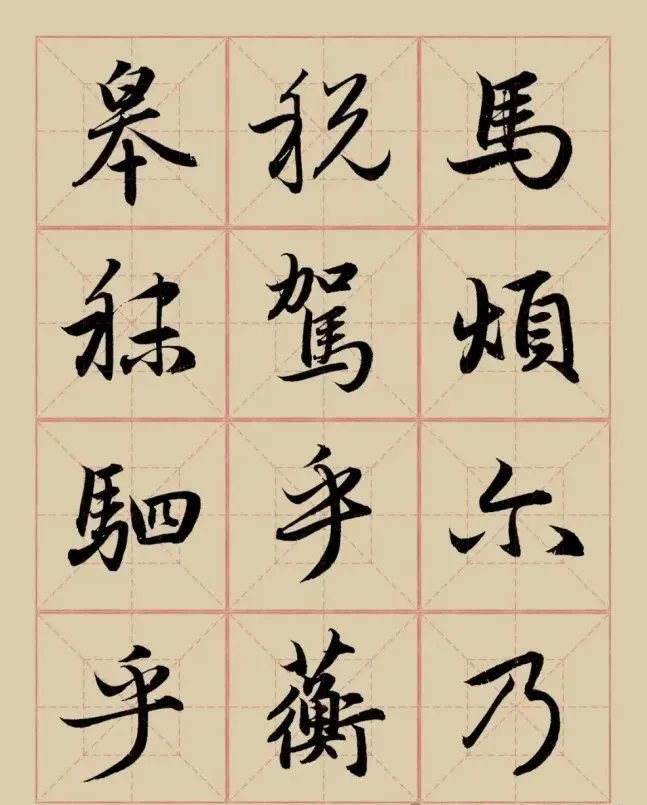 馬煩尓乃
税駕乎蘅
皋秣駟乎